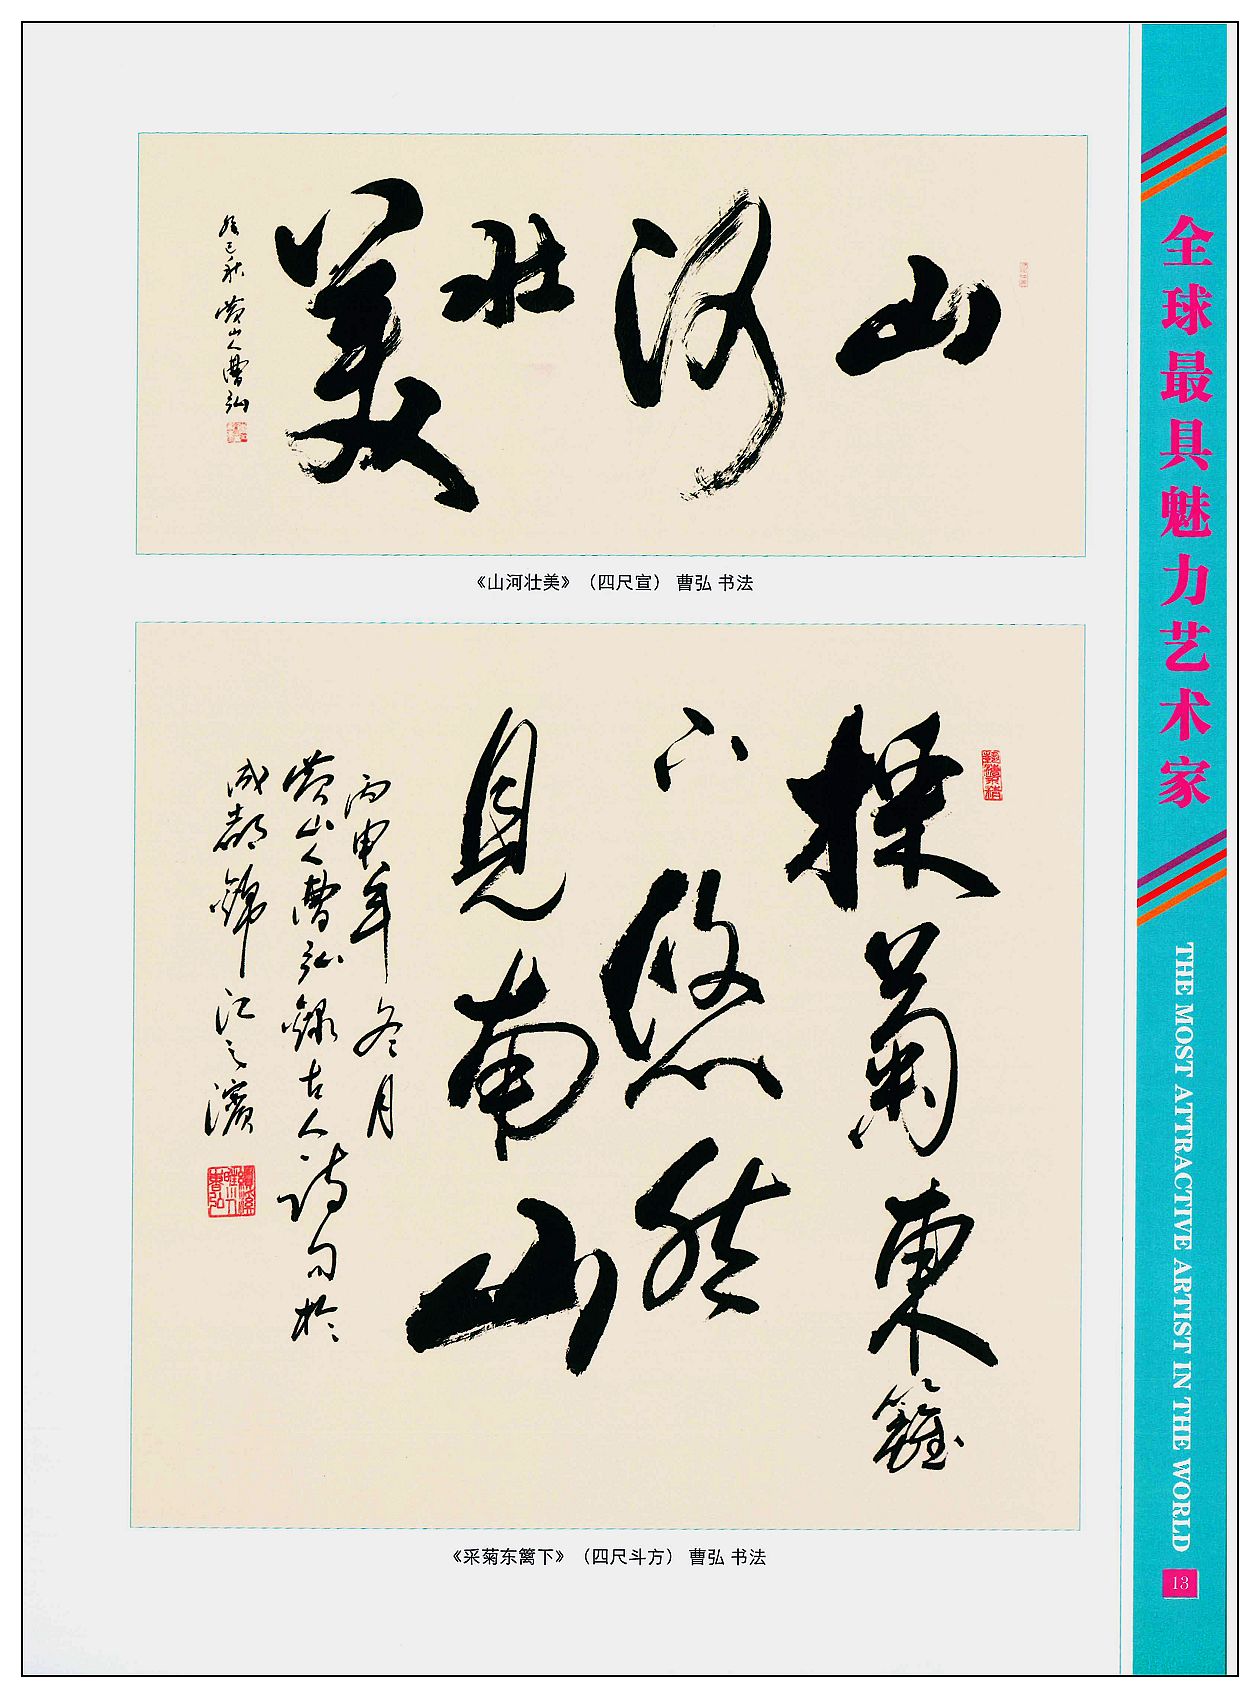 山河壮美
癸巳秋 黄山人曹弘
《山河壮美》（四尺宣） 曹弘 书法
採菊東籬
下悠然
見南山
丙申年冬月
黄山人曹弘録古人詩句於
成都錦江之濱
《采菊东篱下》（四尺斗方） 曹弘 书法
全球最具魅力艺术家
THE MOST ATTRACTIVE ARTIST IN THE WORLD
13